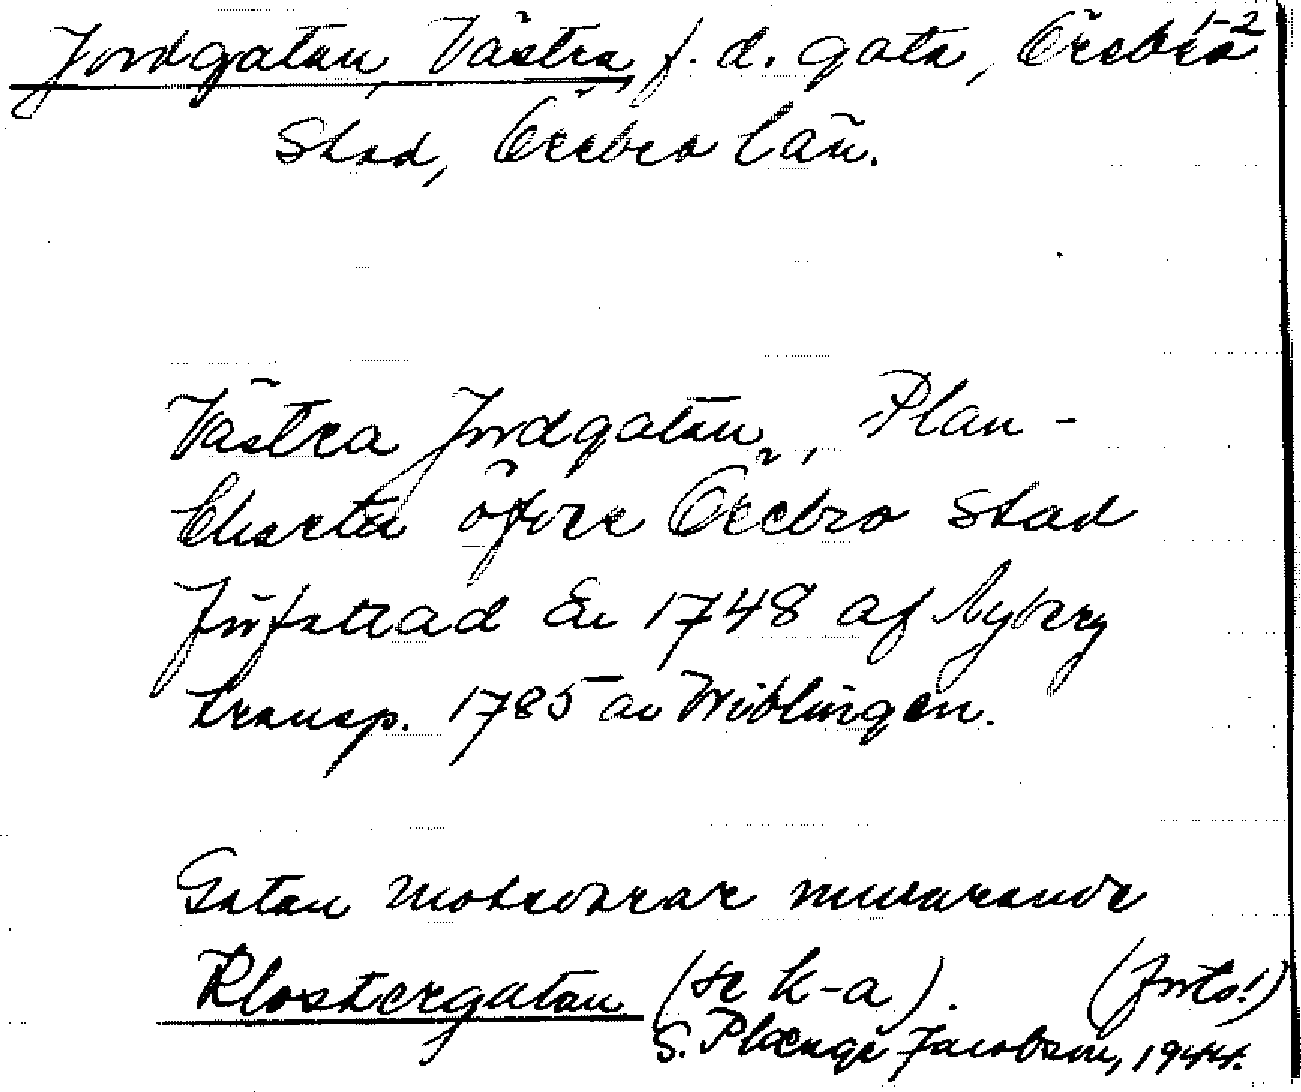 Jordgatan, Västra, f. d. gata, Örebro 1-2
Stad, Örebro län.
Västra Jordgatan, Plan-
Charta öfver Örebro Stad
Författad År 1748 af Nyberg
transp. 1785 av Wiblingen.
Gatan motsvarar nuvarande
Klostergatan (se k-a). (forts!)
S. Plænge Jacobson, 1944.